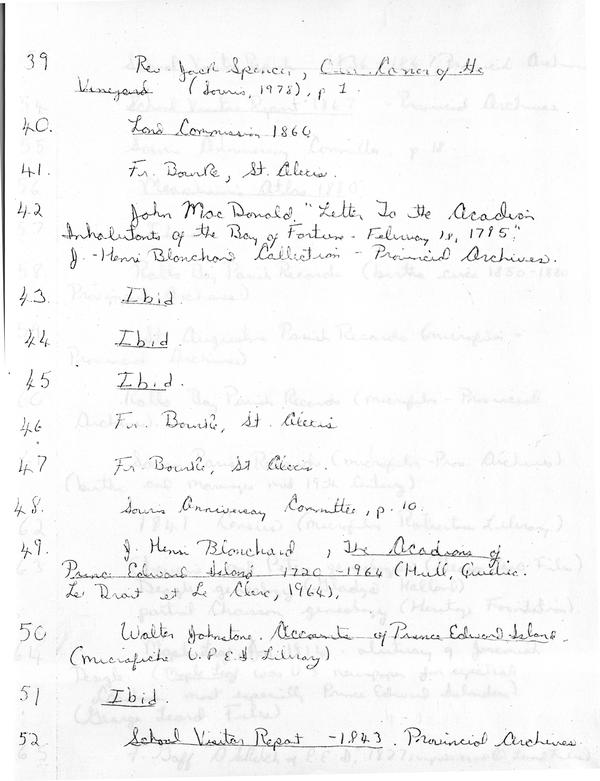 39 Rev. Jack Spencer, Our Corner of the
Vineyard (Souris, 1978), p 1.
40. Land Commission 1864
41. Fr. Bourke, St. Alexis.
42 John MacDonald "Letter To the Acadian
Inhabitants of the Bay of Fortune - February 18, 1795."
J.-Henri Blanchard Collection - Provincial Archives.
43. Ibid.
44 Ibid.
45 Ibid.
46 Fr. Bourke, St. Alexis
47 Fr. Bourke, St Alexis.
48. Souris Anniversary Committee, p. 10.
49. J. Henri Blanchard, The Acadians of
Prince Edward Island 1720-1964 (Hull, Quebec.
Le Droit et Le Clerc, 1964),
50 Walter Johnstone. Accounts of Prince Edward Island.
(Microfiche U.P.E.I. Library)
51 Ibid.
52 School Visitor Report -1843. Provincial Archives.